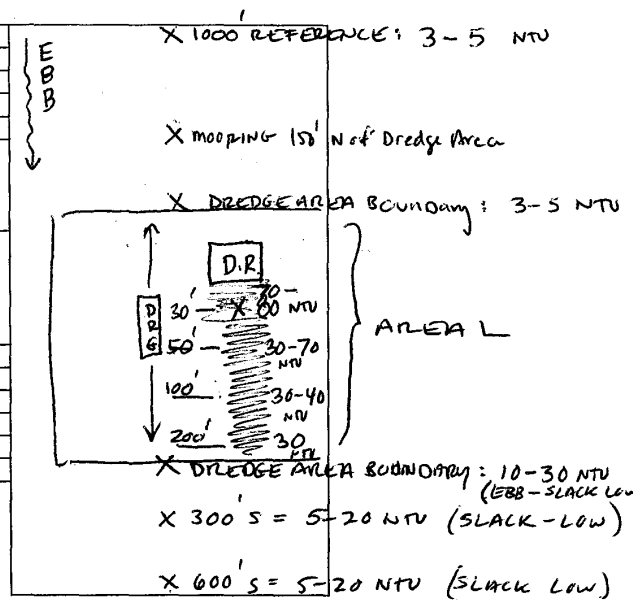 EBB
X 1000' REFERENCE: 3-5 NTU
X MOORING 150' N of Dredge Area
X DREDGE AREA BOUNDARY: 3-5 NTU
D.R.
DRG
30' - X 80 NTU
50' - 30-70 NTU
100' 30-40 NTU
200' 30 NTU
AREA L
X DREDGE AREA BOUNDARY: 10-30 NTU
(EBB-SLACK LOW
X 300' S = 5-20 NTU (SLACK-LOW)
X 600' S = 5-20 NTU (SLACK LOW)